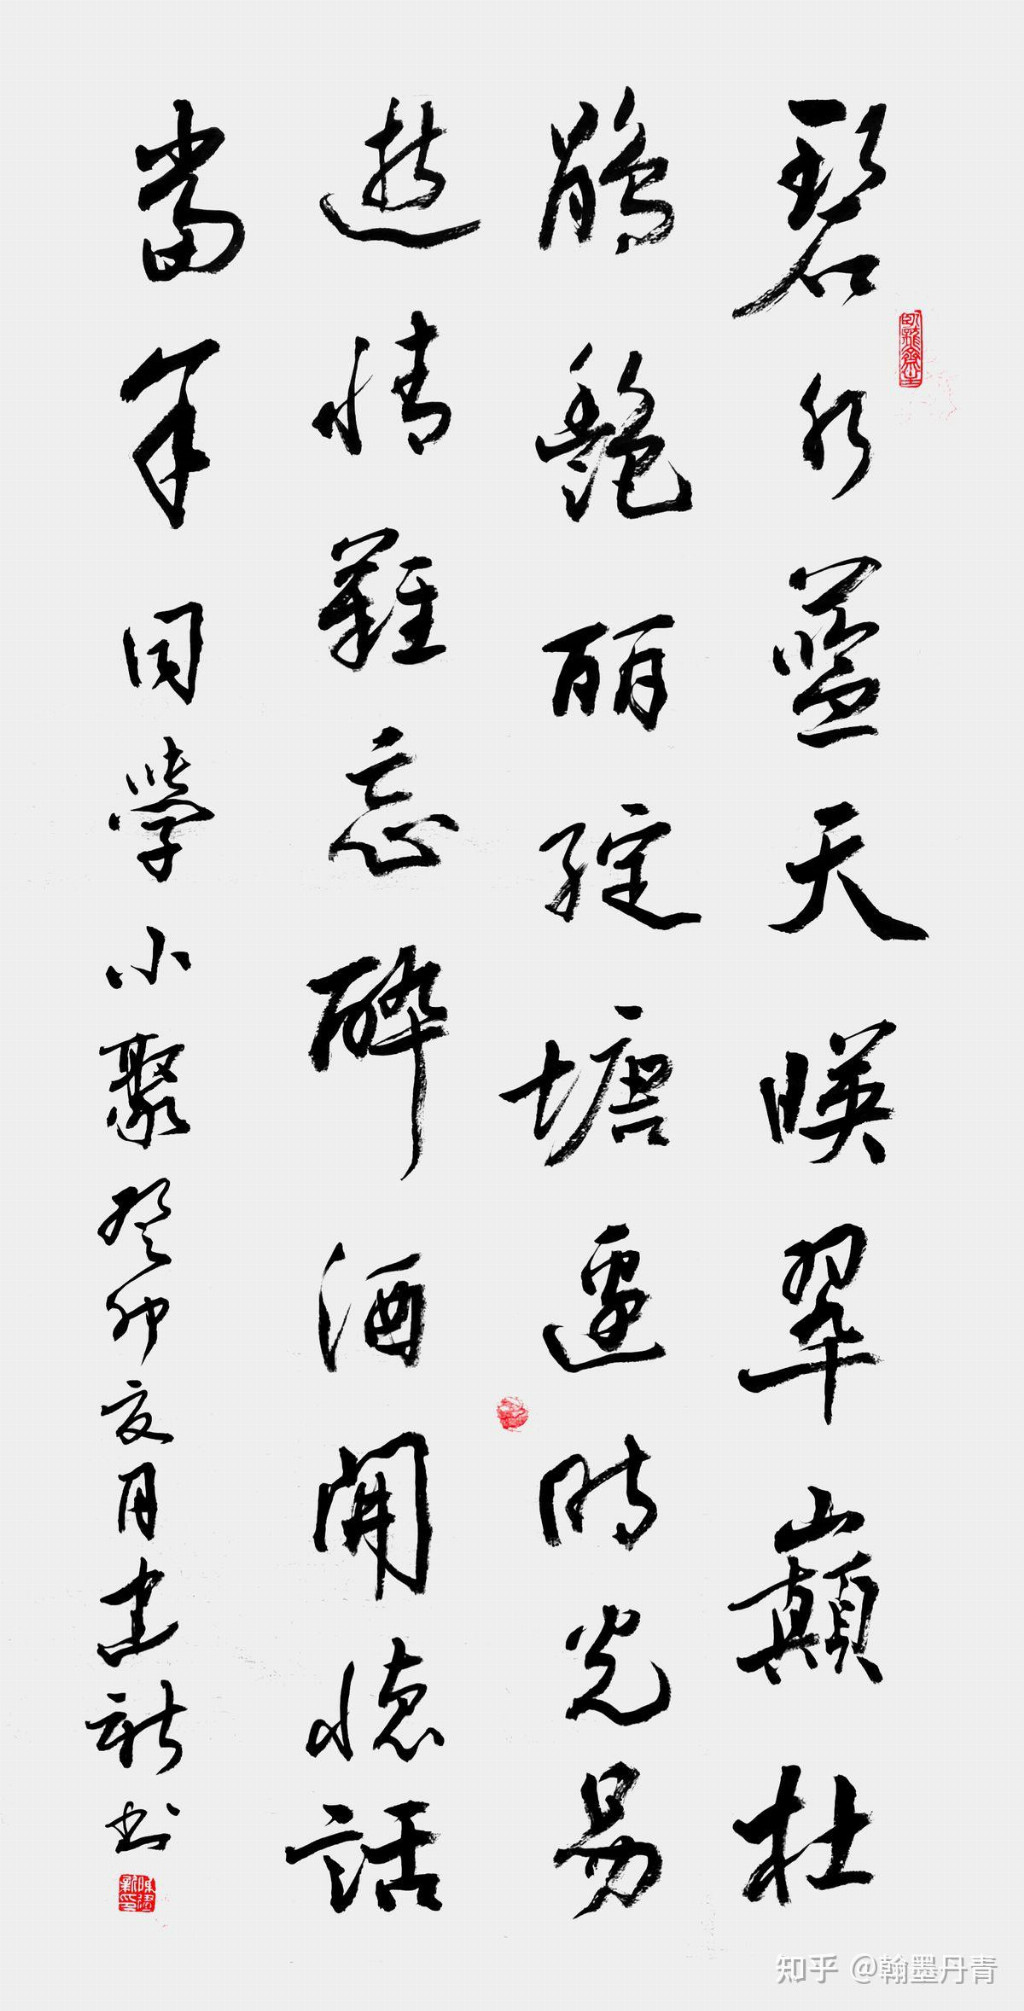 碧水蓝天暎翠巅杜
鹃艳丽绽塘边时光易
逝情難忘醉酒開懷話
當年同學小聚癸卯夏月建新书
知乎 @翰墨丹青